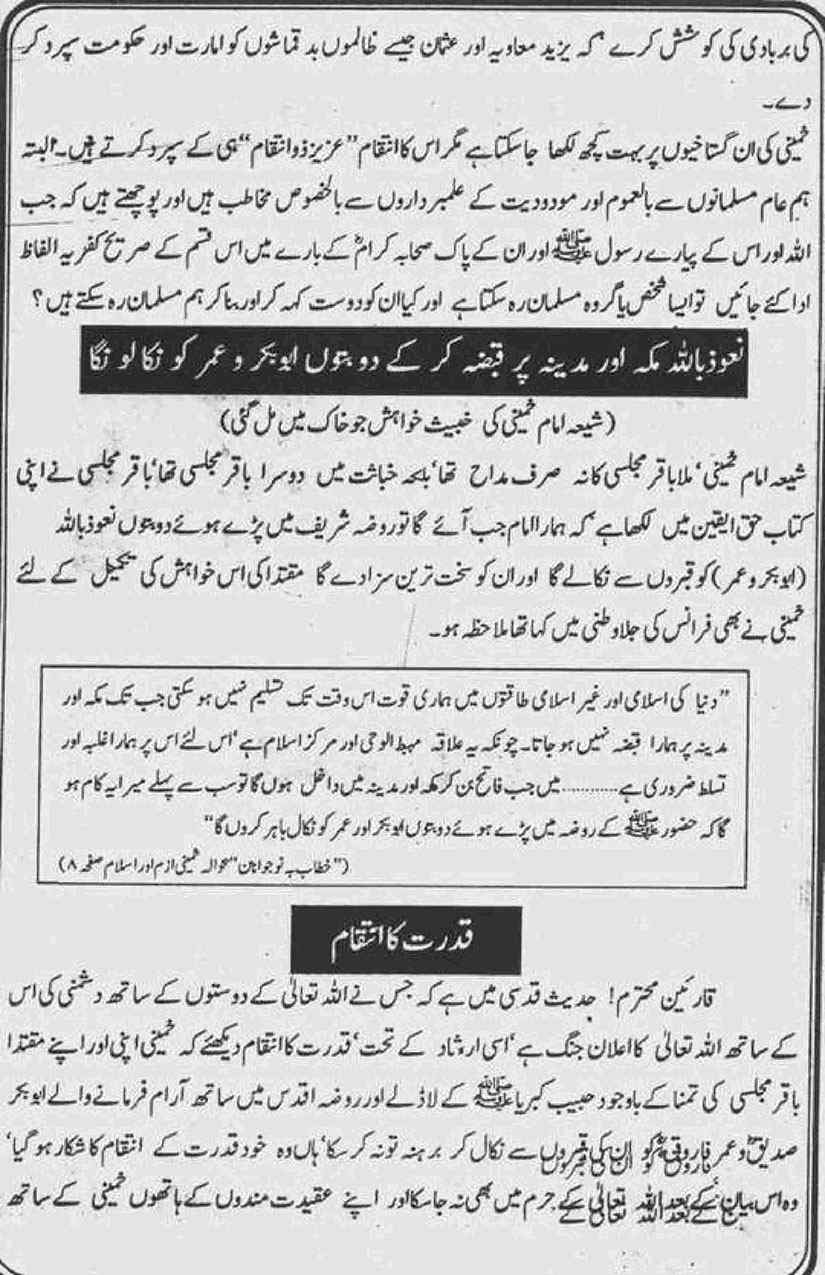 کی بربادی کی کوشش کرے ‘کہ یزید معاویہ اور عثمان جیسے ظالموں بد قماشوں کو امارت اور حکومت سپرد کر
دے۔
خمینی کی ان گستاخیوں پر بہت کچھ لکھا جاسکتا ہے مگر اس کا انتقام ”عزیز ذو انتقام“ ہی کے سپرد کرتے ہیں۔ البتہ
ہم عام مسلمانوں سے بالعموم اور مودودیت کے علمبرداروں سے بالخصوص مخاطب ہیں اور پوچھتے ہیں کہ جب
اللہ اور اس کے پیارے رسول ﷺ اور ان کے پاک صحابہ کرامؓ کے بارے میں اس قسم کے صریح کفریہ الفاظ
ادا کئے جائیں تو ایسا شخص یا گروہ مسلمان رہ سکتا ہے اور کیا ان کو دوست کہہ کر اور بنا کر ہم مسلمان رہ سکتے ہیں؟
نعوذ باللہ مکہ اور مدینہ پر قبضہ کر کے دو بتوں ابو بکر و عمر کو نکالو نگا
(شیعہ امام خمینی کی خبیث خواہش جو خاک میں مل گئی)
شیعہ امام خمینی‘ ملا باقر مجلسی کا نہ صرف مداح تھا‘ بلکہ خباثت میں دوسرا باقر مجلسی تھا‘ باقر مجلسی نے اپنی
کتاب حق الیقین میں لکھا ہے‘ کہ ہمارا امام جب آئے گا تو روضہ شریف میں پڑے ہوئے دو بتوں نعوذ باللہ
(ابو بکر و عمر) کو قبروں سے نکالے گا اور ان کو سخت ترین سزا دے گا مقتدا کی اس خواہش کی تکمیل کے لئے
خمینی نے بھی فرانس کی جلاوطنی میں کہا تھا ملاحظہ ہو۔
”دنیا کی اسلامی اور غیر اسلامی طاقتوں میں ہماری قوت اس وقت تک تسلیم نہیں ہو سکتی جب تک مکہ اور
مدینہ پر ہمارا قبضہ نہیں ہو جاتا۔ چونکہ یہ علاقہ مہبط الوحی اور مرکز اسلام ہے‘ اس لئے اس پر ہمارا غلبہ اور
تسلط ضروری ہے............ میں جب فاتح بن کر مکہ اور مدینہ میں داخل ہوں گا تو سب سے پہلے میرا یہ کام ہو
گا کہ حضور ﷺ کے روضہ میں پڑے ہوئے دو بتوں ابو بکر اور عمر کو نکال باہر کروں گا“
(”خطاب بہ نوجوانان“ بحوالہ خمینی ازم اور اسلام صفحہ ۸)
قدرت کا انتقام
قارئین محترم! حدیث قدسی میں ہے کہ جس نے اللہ تعالیٰ کے دوستوں کے ساتھ دشمنی کی اس
کے ساتھ اللہ تعالیٰ کا اعلان جنگ ہے‘ اسی ارشاد کے تحت‘ قدرت کا انتقام دیکھئے کہ خمینی اپنی اور اپنے مقتدا
باقر مجلسی کی تمنا کے باوجود حبیب کبریا ﷺ کے لاڈلے اور روضہ اقدس میں ساتھ آرام فرمانے والے ابو بکر
صدیقؓ و عمر فاروقؓ کو ان کی قبروں سے نکال کر برہنہ تو نہ کر سکا‘ ہاں وہ خود قدرت کے انتقام کا شکار ہو گیا‘
وہ اس بیان کے بعد اللہ تعالیٰ کے حرم میں بھی نہ جاسکا اور اپنے عقیدت مندوں کے ہاتھوں خمینی کے ساتھ